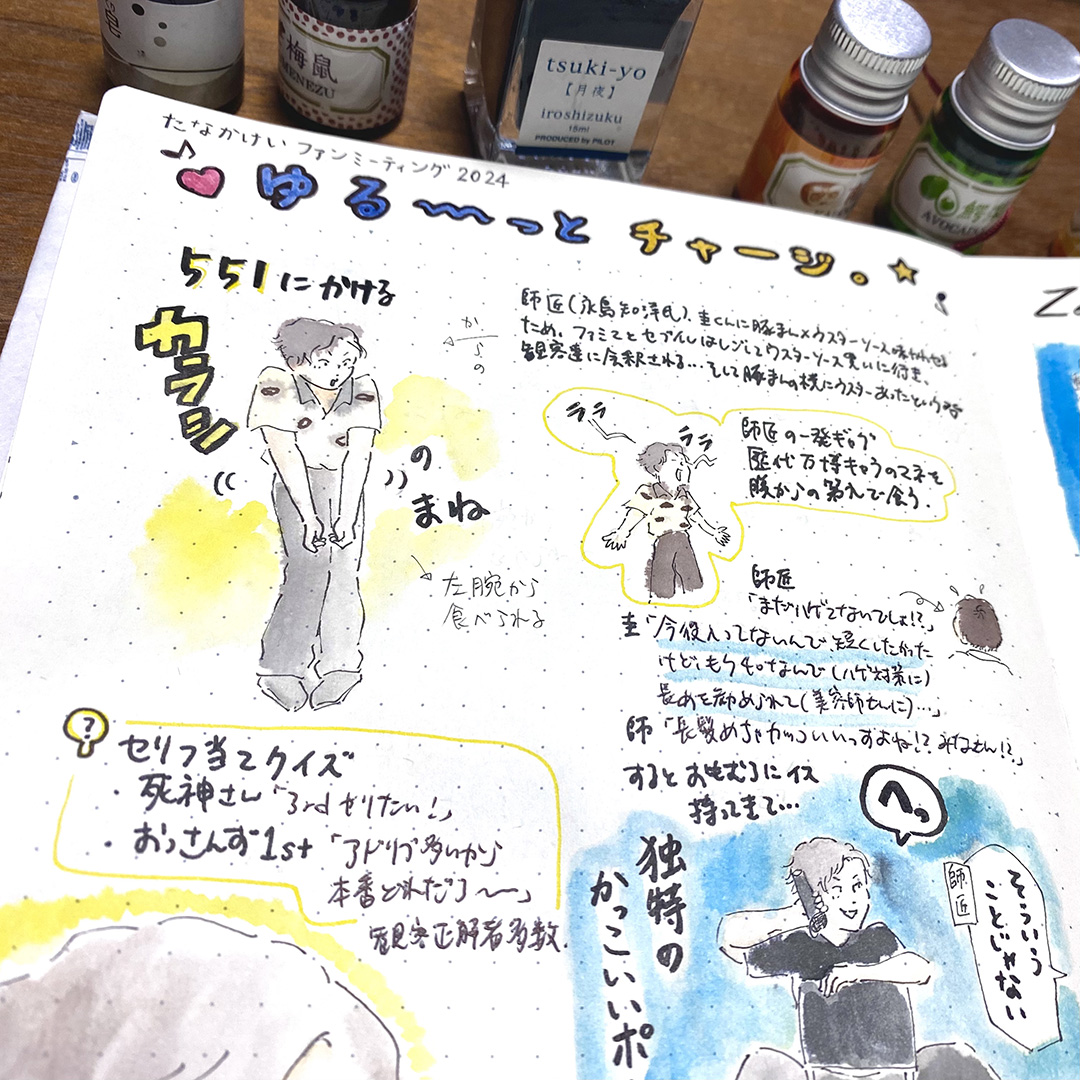 梅鼠
UMENEZU
tsuki-yo
【月夜】
iroshizuku
15ml
PRODUCED by PILOT
AVOCADO
たなかけい ファンミーティング 2024
ゆる〜〜っと チャージ。
551にかける
カラシ
の
まね
左腕から
食べられる
師匠(永島知洋氏)、圭くんに豚まん×ウスターソース味わわせる
ため、ファミマとセブンイレはしごしてウスターソース買いに行き、
観客達に会釈される…そして豚まんの横にウスターあったという時
ララ
ララ
師匠の一発ギャグ
歴代万博キャラのマネを
豚からの第入で食う。
師匠
「まだハゲてないでしょ!?」
圭「今役入ってないんで短くしたかった
けど、もう40なんで(ハゲ対策に)
長めを勧められて(美容師さんに)…」
師「長髪めちゃカッコいいっすよね!? みなさん!?」
するとおもむろにイス
持ってきて…
?
セリフ当てクイズ
・死神さん「3rdやりたい!」
・おっさんず1st「アドリブ多いから
本番どれだろ〜〜」
観客正解者多数。
へっ
独特の
かっこいいポ
師匠
そういう
ことじゃない